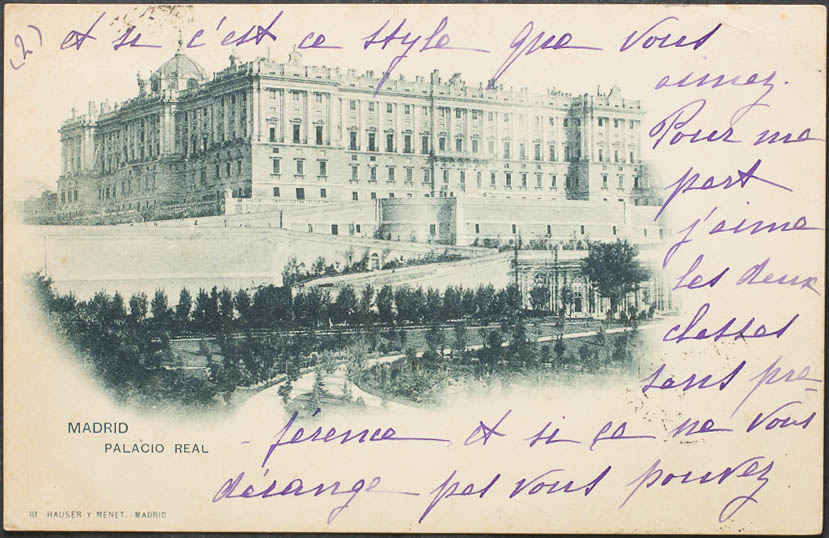 (2) et si c'est ce style que vous
aimez.
Pour ma
part
j'aime
les deux
classes
sans pré-
-férence et si ça ne vous
dérange pas vous pouvez
MADRID
PALACIO REAL
81 HAUSER Y MENET.-MADRID